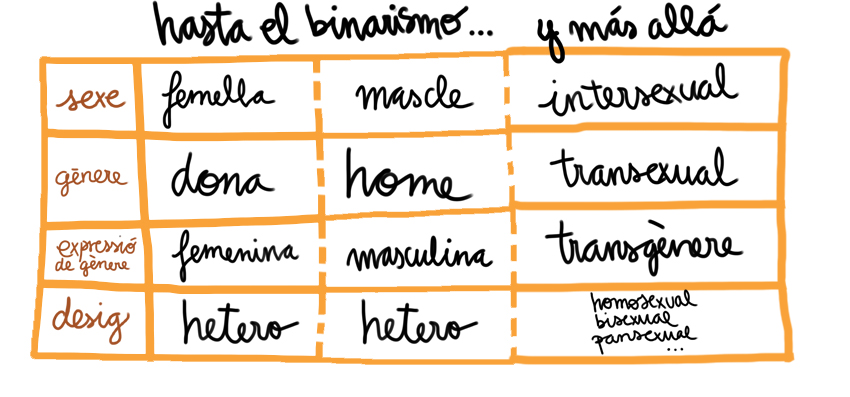 hasta el binarismo... y más allá
sexe femella mascle intersexual
gènere dona home transexual
expressió de gènere femenina masculina transgènere
desig hetero hetero homosexual
bisexual
pansexual
...